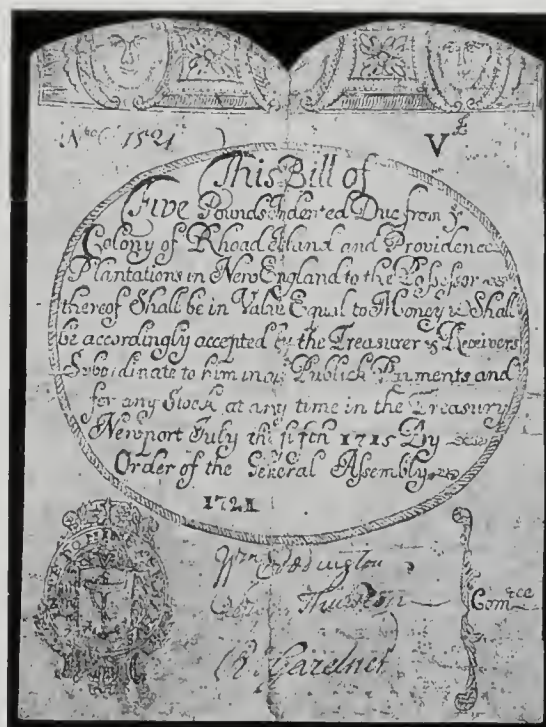 1521
V £
This Bill of
Five Pounds Indented Due from yͤ
Colony of Rhoad Island and Providence
Plantations in New England to the Possessor
thereof Shall be in Value Equal to Money & Shall
be accordingly accepted by the Treasurer & Receivers
Subordinate to him in all Publick Paiments and
for any Stock at any time in the Treasury
Newport July the fifth 1715 By
Order of the General Assembly
1721
Wm
Com.tee
Gardner